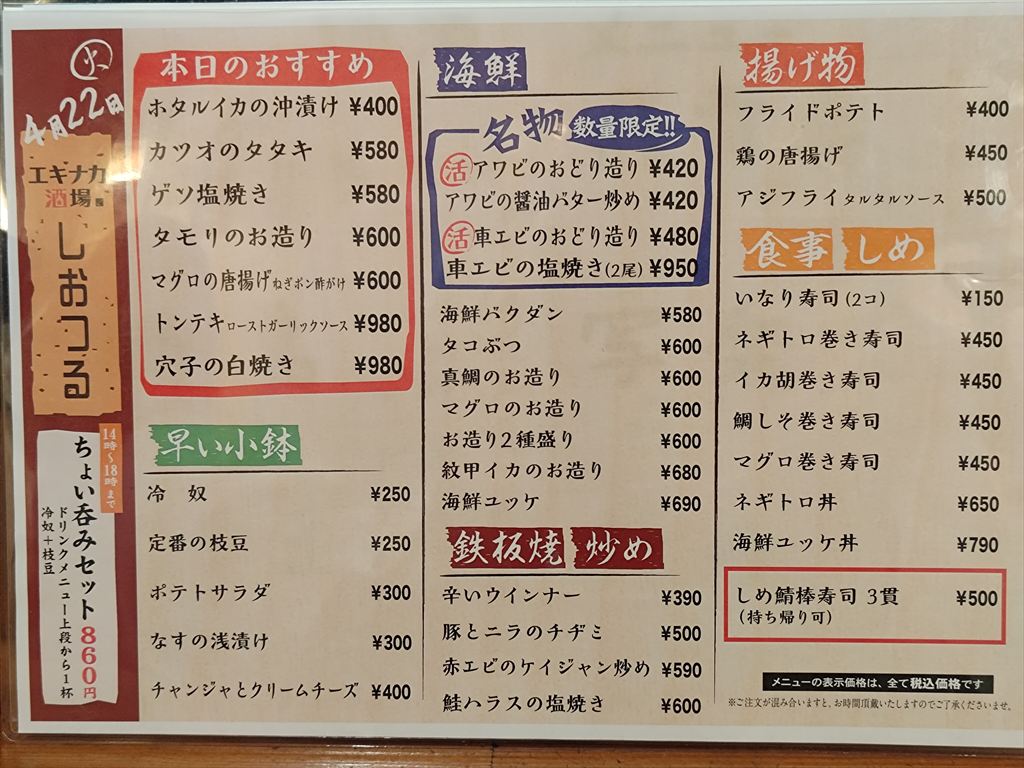 火
4月22日
エキナカ
酒場
しおつる
14時~18時まで
ちょい呑みセット860円
ドリンクメニュー上段から1杯
冷奴+枝豆
本日のおすすめ
ホタルイカの沖漬け ¥400
カツオのタタキ ¥580
ゲソ塩焼き ¥580
タモリのお造り ¥600
マグロの唐揚げねぎポン酢がけ ¥600
トンテキローストガーリックソース ¥980
穴子の白焼き ¥980
早い小鉢
冷 奴 ¥250
定番の枝豆 ¥250
ポテトサラダ ¥300
なすの浅漬け ¥300
チャンジャとクリームチーズ ¥400
海鮮
名物 数量限定!!
活 アワビのおどり造り ¥420
アワビの醤油バター炒め ¥420
活 車エビのおどり造り ¥480
車エビの塩焼き(2尾) ¥950
海鮮バクダン ¥580
タコぶつ ¥600
真鯛のお造り ¥600
マグロのお造り ¥600
お造り2種盛り ¥600
紋甲イカのお造り ¥680
海鮮ユッケ ¥690
鉄板焼 炒め
辛いウインナー ¥390
豚とニラのチヂミ ¥500
赤エビのケイジャン炒め ¥590
鮭ハラスの塩焼き ¥600
揚げ物
フライドポテト ¥400
鶏の唐揚げ ¥450
アジフライタルタルソース ¥500
食事 しめ
いなり寿司(2コ) ¥150
ネギトロ巻き寿司 ¥450
イカ胡巻き寿司 ¥450
鯛しそ巻き寿司 ¥450
マグロ巻き寿司 ¥450
ネギトロ丼 ¥650
海鮮ユッケ丼 ¥790
しめ鯖棒寿司 3貫 ¥500
(持ち帰り可)
メニューの表示価格は、全て税込価格です
※ご注文が混み合いますと、お時間頂戴いたしますのでご了承くださいませ。